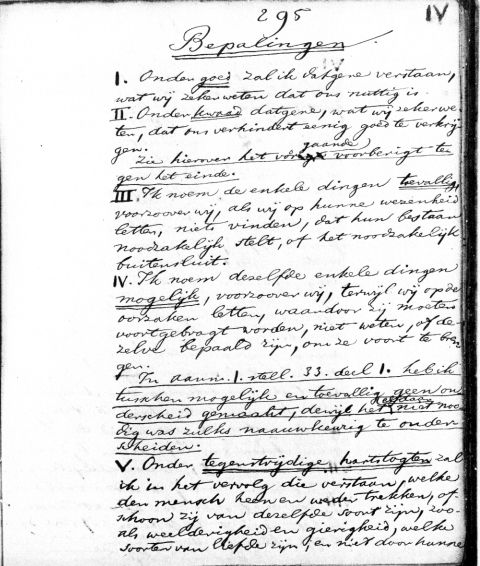 295 IV
Bepalingen.
I. Onder goed zal ik datgene verstaan,
wat wij zeker weten dat ons nuttig is.
II. Onder kwaad datgene, wat wij zeker we-
ten, dat ons verhindert eenig goed te verkrij-
gen.
gaande
Zie hierover het voorberigt te-
gen het einde.
III. Ik noem de enkele dingen toevallig,
voorzoover wij, als wij op hunne wezenheid
letten, niets vinden, dat hun bestaan
noodzakelijk stelt, of het noodzakelijk
buitensluit.
IV. Ik noem dezelfde enkele dingen
mogelijk, voorzoover wij, terwijl wij op de
oorzaken letten, waardoor zij moeten
voortgebragt worden, niet weten, of de-
zelve bepaald zijn, om ze voort te bren-
gen.
In aanm. 1. stell. 33. deel 1. heb ik
tusschen mogelijk en toevallig geen on-
derscheid gemaakt, dewijl het aldaar niet noo-
dig was zulks naauwkeurig te onder-
scheiden.
V. Onder tegenstrijdige hartstogten zal
ik in het vervolg die verstaan, welke
den mensch heen en weder trekken, of-
schoon zij van dezelfde soort zijn, zoo-
als weelderigheid en gierigheid, welke
soorten van liefde zijn, en niet door hunne